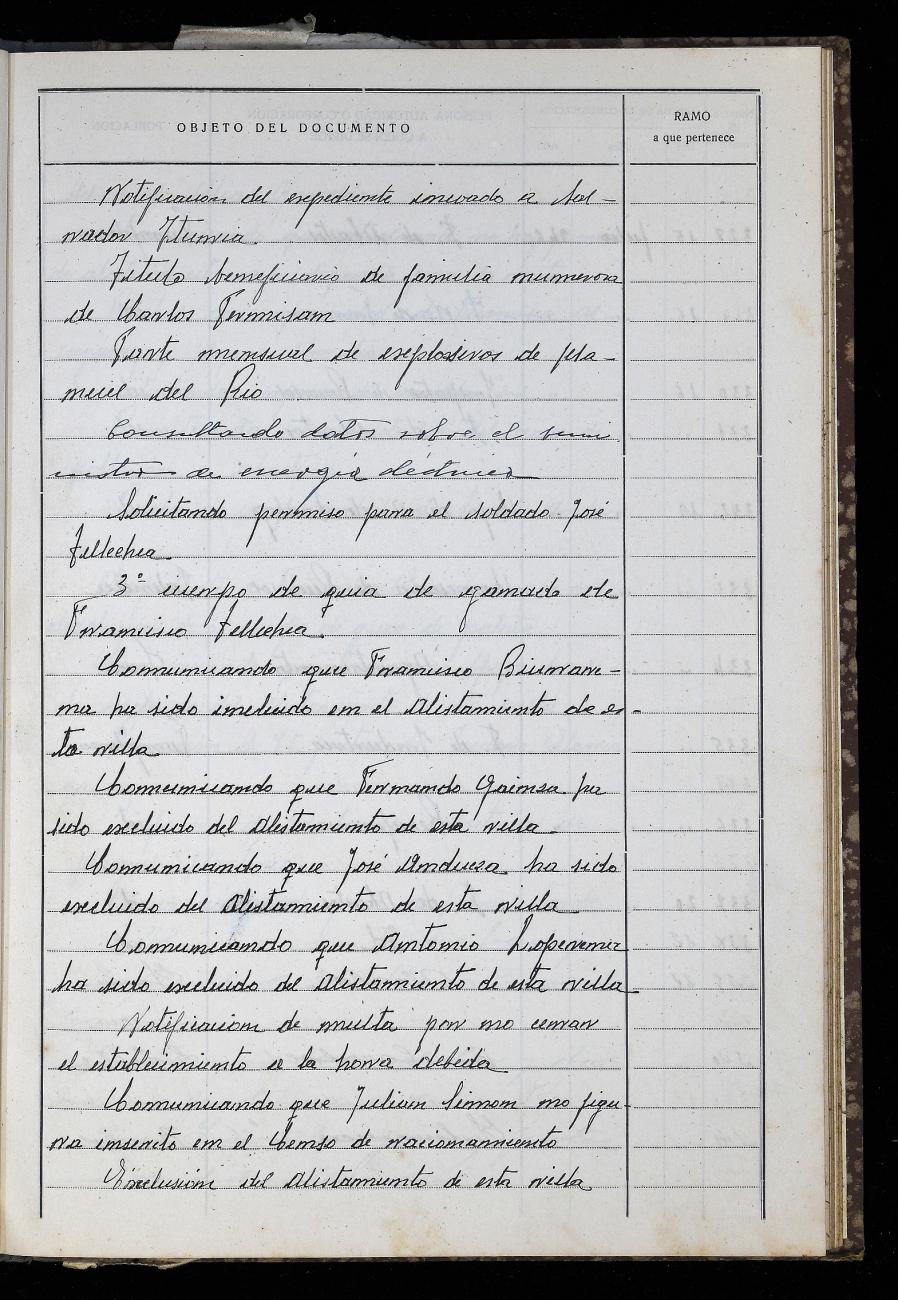 OBJETO DEL DOCUMENTO
RAMO
a que pertenece
Notificacion del expediente incoado a Sal-
vador Iturria.
Titulo beneficiario de familia numerosa
de Carlos Fermisam
Parte mensual de explosivos de Ma-
nuel del Rio
Consultando datos sobre el sumi
nistro de energia eléctrica
Solicitando permiso para el soldado José
Tellechea
3º cuerpo de guia de ganado de
Francisco Tellechea.
Comunicando que Francisco
ha sido incluido en el Alistamiento de es-
ta villa
Comunicando que Fernando Gainza ha
sido excluido del Alistamiento de esta villa
Comunicando que José Andueza ha sido
excluido del Alistamiento de esta villa
Comunicando que Antonio
ha sido excluido del Alistamiento de esta villa
Notificacion de multa por no cerrar
el establecimiento a la hora debida
Comunicando que Julian Simon no figu-
ra inscrito en el Censo de racionamiento
Exclusión del Alistamiento de esta villa